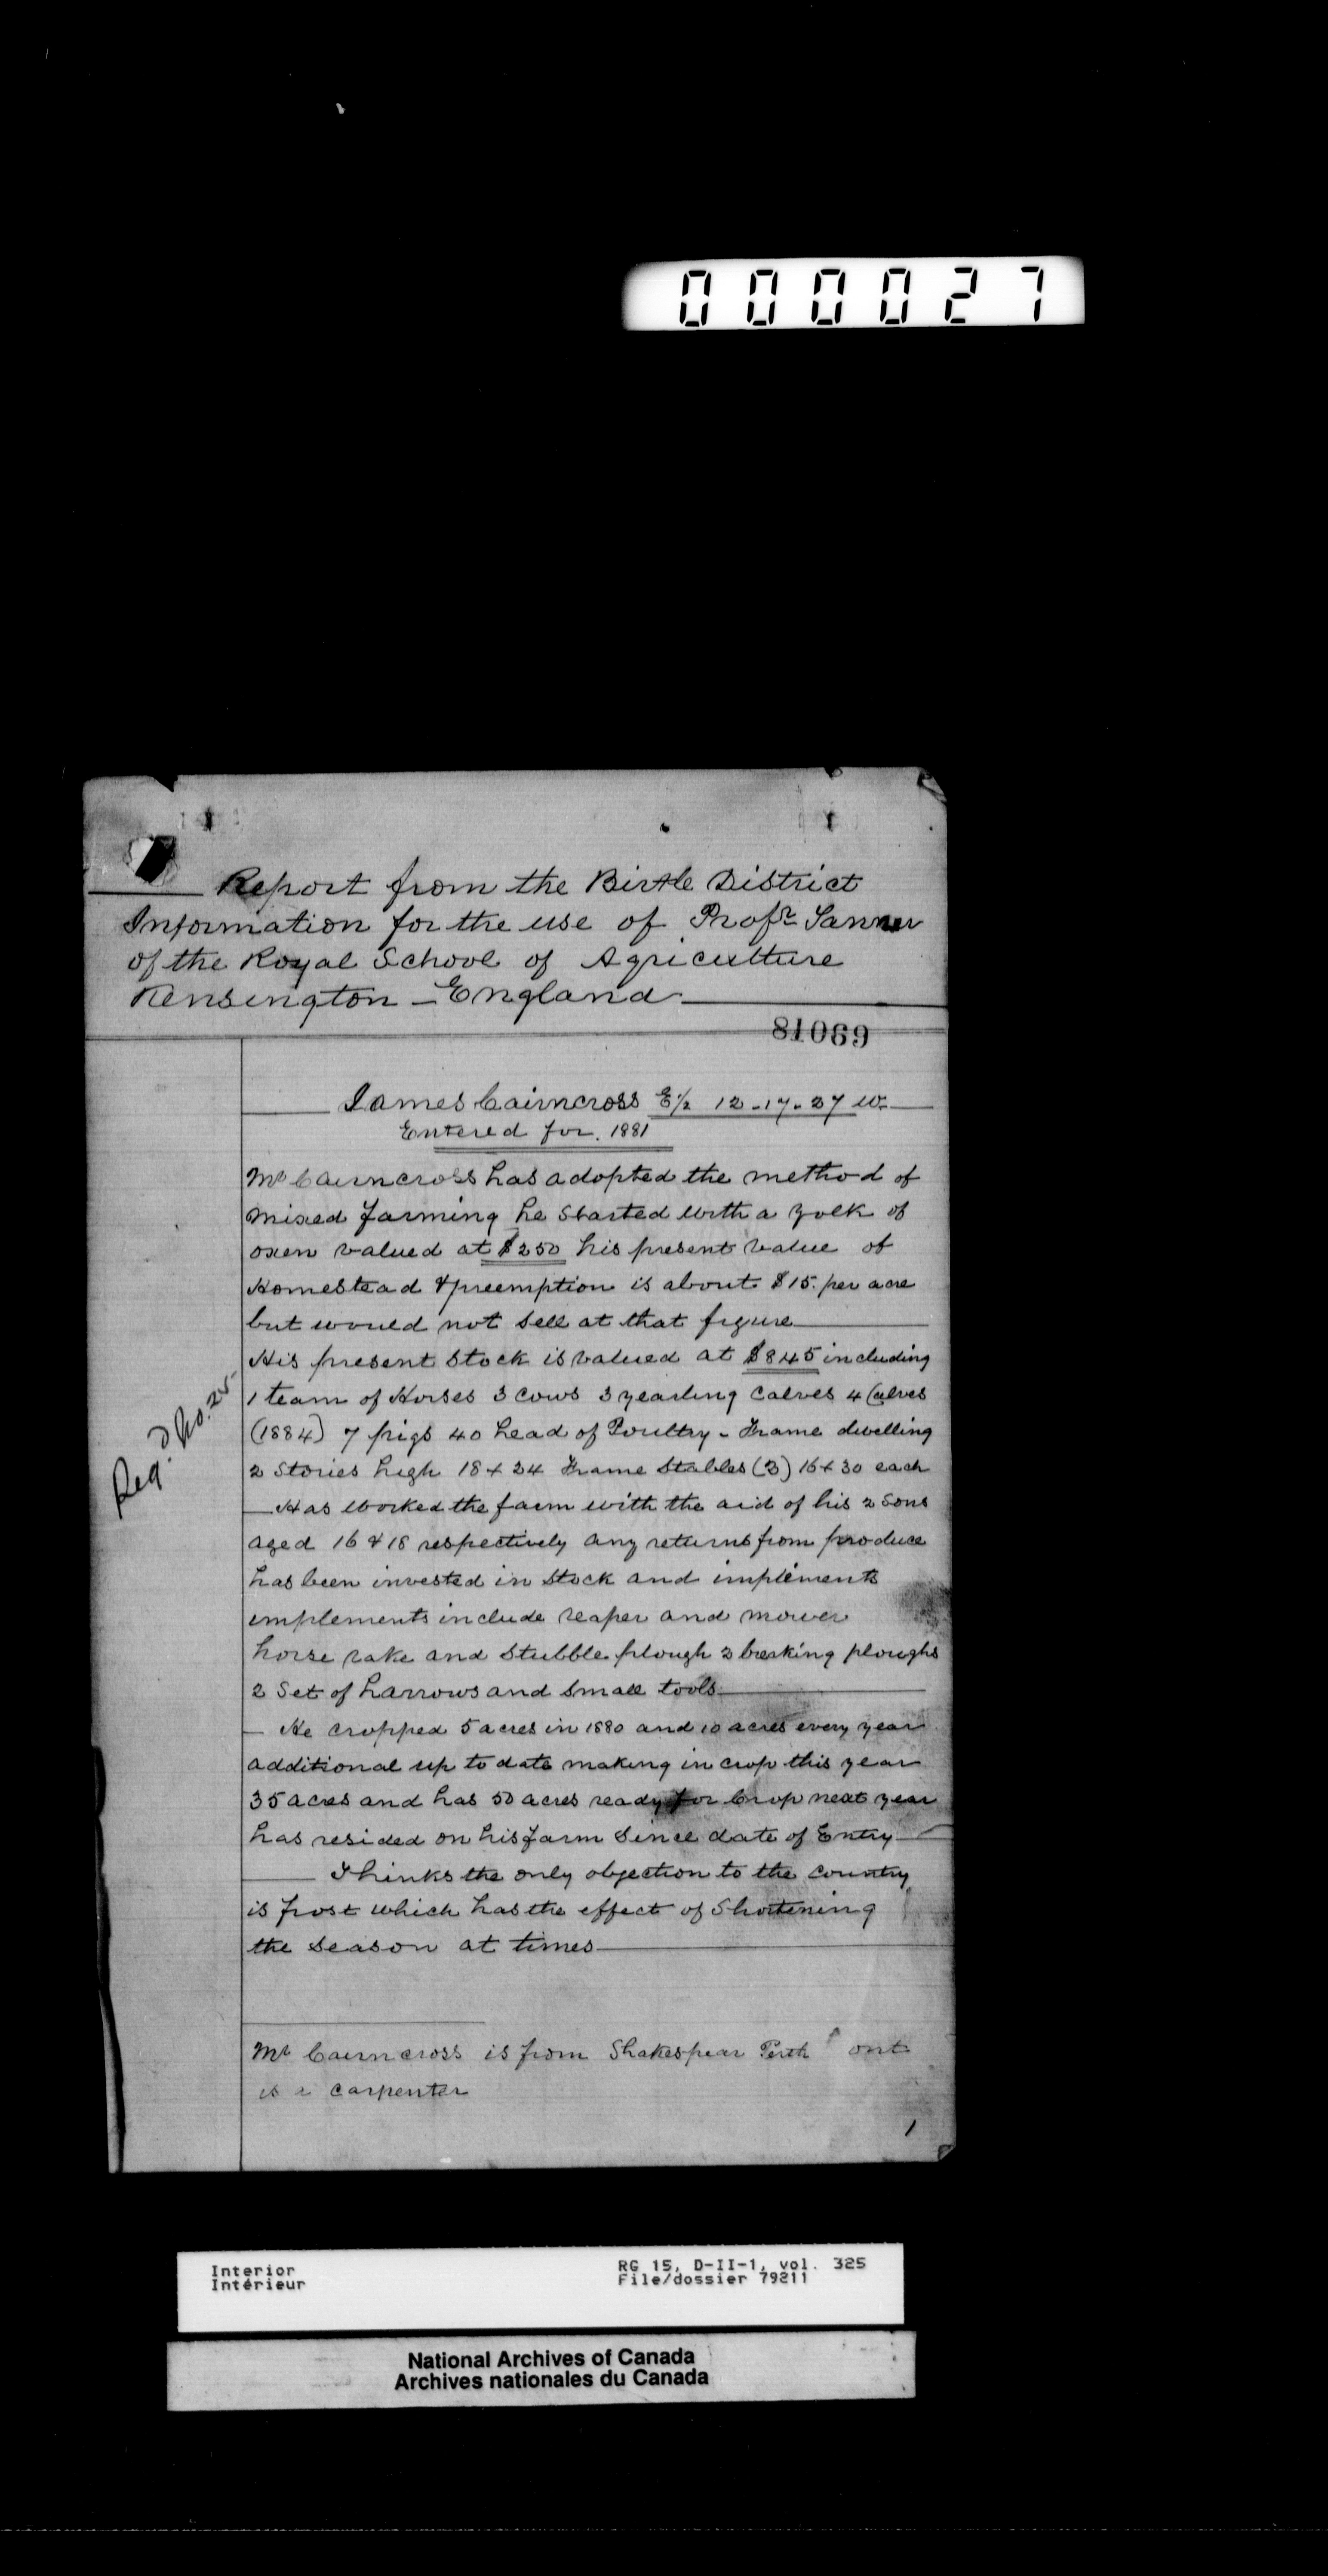 000027
Report from the Birtle District
Information for the use of Profr Tanner
of the Royal School of Agriculture
Kensington - England
81069
James Cairncross E 1/2 12-17-27 W.
Entered for. 1881
Mr Cairncross has adopted the method of
mixed farming he started with a yolk of
oxen valued at $250 his present value of
Homestead & preemption is about $15. per acre
but would not sell at that figure
His present stock is valued at $845 including
1 team of Horses 3 cows 3 yearling Calves 4 Calves
(1884) 7 pigs 40 head of Poultry - Frame dwelling
2 Stories high 18 x 24 Frame Stables (3) 16 x 30 each
Has worked the farm with the aid of his 2 Sons
aged 16 & 18 respectively any returns from produce
has been invested in Stock and implements
implements include reaper and mower
horse rake and Stubble plough 2 breaking ploughs
2 Set of harrows and small tools
He cropped 5 acres in 1880 and 10 acres every year
additional up to date making in crop this year
35 acres and has 50 acres ready for Crop next year
has resided on his farm Since date of Entry
Thinks the only objection to the country
is frost which has the effect of Shortening
the season at times
Reg.
Mr Cairncross is from Shakespear Perth Ont
is a carpenter
1
Interior
Intérieur
RG 15, D-II-1, vol. 325
File/dossier 79211
National Archives of Canada
Archives nationales du Canada